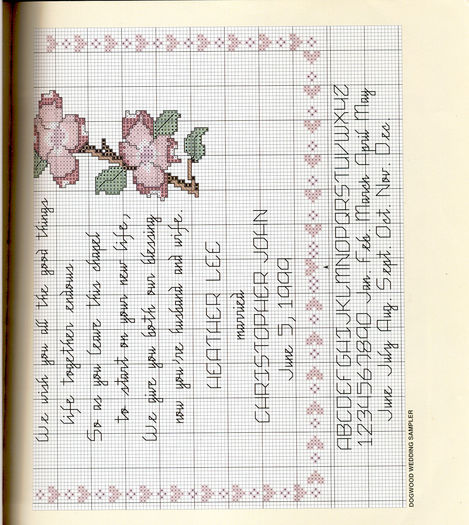 We wish you all the good things
life together endows.
So as you leave this chapel
to start on your new life,
We give you both our blessing
now you're husband and wife.
HEATHER LEE
married
CHRISTOPHER JOHN
June 5, 1999
ABCDEFGHIJKLMNOPQRSTUVWXYZ
1234567890 Jan. Feb. March April May
June July Aug. Sept. Oct. Nov. Dec.
DOGWOOD WEDDING SAMPLER